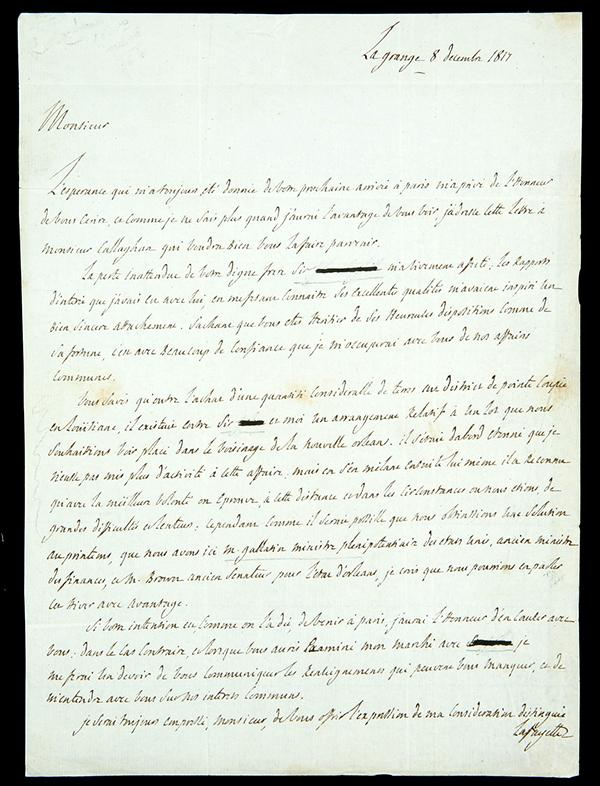 La grange 8 decembre 1817
Monsieur
L'esperance qui m'a toujours été donnée de votre prochaine arrivée à paris m'a privé de l'Honneur
de vous ecrire, et comme je ne sais plus quand j'aurai l'avantage de vous voir, j'adresse cette lettre à
monsieur Callaghan qui voudra bien vous la faire parvenir.
La perte inattendue de votre digne frere Sir m'a vivement affecté; les Rapports
d'interêt que j'avais eu avec lui, en me faisant connaitre ses excellentes qualités m'avaient inspiré un
bien sincere attachement. Sachant que vous etes héritier de ses Heureuses dispositions comme de
sa fortune, c'est avec Beaucoup de Confiance que je m'occuperai avec vous de nos affaires
communes.
Vous savez qu'outre l'achat d'une quantité considerable de terres au district de pointe Coupée
en Louisiane, il existait entre Sir et moi un arrangement Relatif à un lot que nous
souhaitions voir placé dans le voisinage de la nouvelle orleans. il serait d'abord etonné que je
n'eusse pas mis plus d'activité à cette affaire, mais en s'en mêlant ensuite lui même il a Reconnu
qu'avec la meilleure volonté on Eprouve, à cette distance et dans les circonstances où nous etions, de
grandes difficultés et lenteurs: cependant comme il serait possible que nous obtinssions une solution
au printems, que nous avons ici m. gallatin ministre plenipotentiaire des etats unis, ancien ministre
des finances, et M. Brown ancien Senateur pour l'etat d'orleans, je crois que nous pourrions en parler
cet Hiver avec avantage.
Si votre intention est comme on l'a dit, de venir à paris, j'aurai l'Honneur d'en causer avec
vous: dans le cas contraire, et lorsque vous aurez Examiné mon marché avec je
me ferai un devoir de vous communiquer les Renseignements qui peuvent vous manquer, et de
m'entendre avec vous sur nos interets communs.
je serai toujours empressé, monsieur, de vous offrir l'expression de ma consideration distinguée
Lafayette